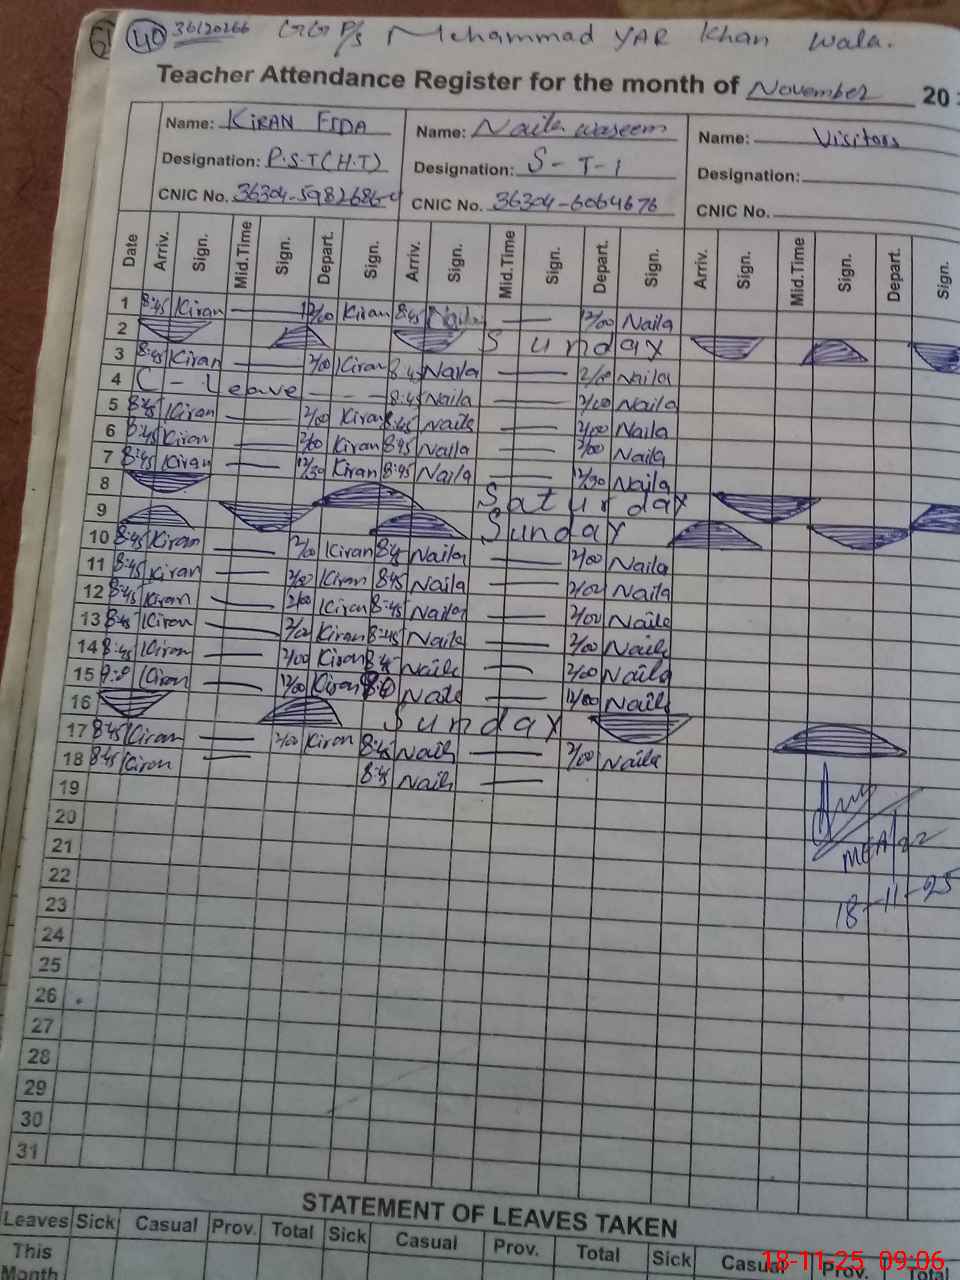 40 36120266 GGP/S Mohammad YAR Khan Wala.
Teacher Attendance Register for the month of November 20
Name: KIRAN FIDA Name: Naila waseem Name: Visitors
Designation: P.S.T(H.T) Designation: S-T-1 Designation:
CNIC No. CNIC No. 36304-6064676 CNIC No.
Date Arriv. Sign. Mid.Time Sign. Depart. Sign. Arriv. Sign. Mid.Time Sign. Depart. Sign. Arriv. Sign. Mid.Time Sign. Depart. Sign.
1 8:45 Kiran — 12/00 Kiran 8:45 Naila — 12/00 Naila
2 Sunday
3 8:45 Kiran — 2/00 Kiran 8:45 Naila — 2/00 Naila
4 C - Leave - - - 8:45 Naila — 2/00 Naila
5 8:45 Kiran — 2/00 Kiran 8:45 Naila — 2/00 Naila
6 8:45 Kiran — 2/00 Kiran 8:45 Naila — 2/00 Naila
7 8:45 Kiran — 12/30 Kiran 8:45 Naila — 12/30 Naila
8 Saturday
9 Sunday
10 8:45 Kiran — 2/00 Kiran 8:45 Naila — 2/00 Naila
11 8:45 Kiran — 2/00 Kiran 8:45 Naila — 2/00 Naila
12 8:45 Kiran — 2/00 Kiran 8:45 Naila — 2/00 Naila
13 8:45 Kiran — 2/00 Kiran 8:45 Naila — 2/00 Naila
14 8:45 Kiran — 2/00 Kiran 8:45 Naila — 2/00 Naila
15 Kiran — 12/00 Kiran Naila — 12/00 Naila
16 Sunday
17 8:45 Kiran — 2/00 Kiran 8:45 Naila — 2/00 Naila
18 8:45 Kiran — 8:45 Naila —
19
20
21 MEA/22
22 18-11-25
23
24
25
26
27
28
29
30
31
STATEMENT OF LEAVES TAKEN
Leaves Sick Casual Prov. Total Sick Casual Prov. Total Sick Casual Prov. Total
This Month
18-11-25 09:06